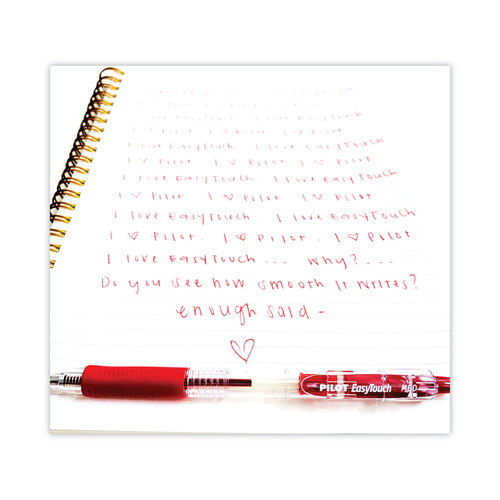 I love EasyTouch I love EasyTouch
I ♡ Pilot I ♡ Pilot I ♡ Pilot
I love EasyTouch I love EasyTouch
I ♡ Pilot I ♡ Pilot I ♡ Pilot
I love EasyTouch I love EasyTouch
I ♡ Pilot. I ♡ Pilot. I ♡ Pilot
I love EasyTouch... Why?...
Do you see how smooth it writes?
enough said -
♡
PILOT EasyTouch MED